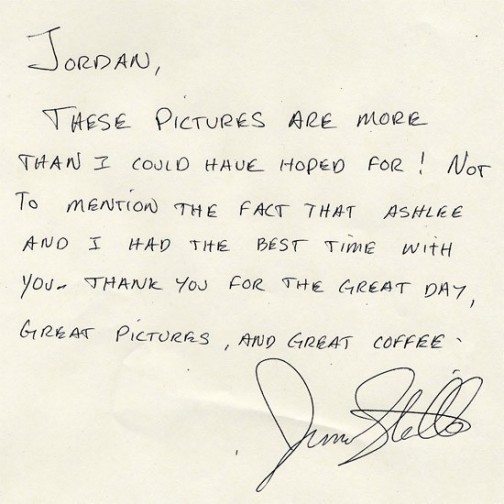 JORDAN,
THESE PICTURES ARE MORE
THAN I COULD HAVE HOPED FOR! NOT
TO MENTION THE FACT THAT ASHLEE
AND I HAD THE BEST TIME WITH
YOU- THANK YOU FOR THE GREAT DAY,
GREAT PICTURES, AND GREAT COFFEE.